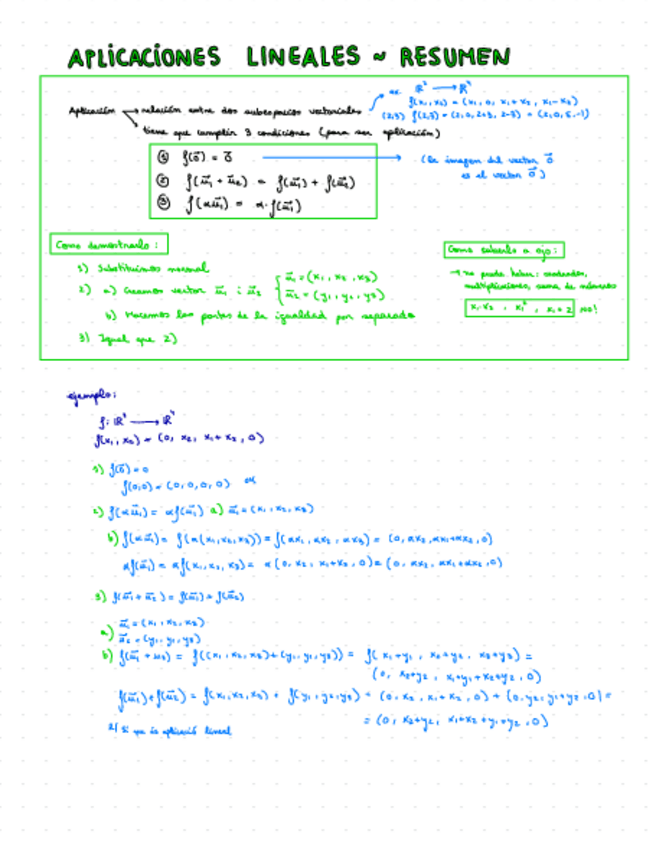 APLICACIONES LINEALES ~ RESUMEN
Aplicación → relación entre dos subespacios vectoriales
→ tiene que cumplir 3 condiciones (para ser aplicación)
ex. ℝ² → ℝ⁴
f(x₁, x₂) = (x₁, 0, x₁+x₂, x₁-x₂)
(2,3) f(2,3) = (2, 0, 2+3, 2-3) = (2, 0, 5, -1)
① f(0⃗) = 0⃗ → (la imagen del vector 0⃗
es el vector 0⃗)
② f(u⃗₁ + u⃗₂) = f(u⃗₁) + f(u⃗₂)
③ f(αu⃗₁) = α·f(u⃗₁)
Como demostrarlo:
1) Substituimos normal
2) a) Creamos vector u⃗₁ i u⃗₂ { u⃗₁ = (x₁, x₂, x₃)
u⃗₂ = (y₁, y₂, y₃)
b) Hacemos las partes de la igualdad por separado
3) Igual que 2)
Como saberlo a ojo:
→ no puede haber: cuadrados,
multiplicaciones, suma de números
x₁·x₂ , x₁² , x₁+2 no!
ejemplo:
f: ℝ³ → ℝ⁴
f(x₁, x₂) = (0, x₂, x₁+x₂, 0)
1) f(0⃗) = 0
f(0,0) = (0,0,0,0) ok
2) f(αu⃗₁) = αf(u⃗₁) a) u⃗₁ = (x₁, x₂, x₃)
b) f(αu⃗₁) = f(α(x₁,x₂,x₃)) = f(αx₁, αx₂, αx₃) = (0, αx₂, αx₁+αx₂, 0)
αf(u⃗₁) = αf(x₁, x₂, x₃) = α(0, x₂, x₁+x₂, 0) = (0, αx₂, αx₁+αx₂, 0)
3) f(u⃗₁+u⃗₂) = f(u⃗₁)+f(u⃗₂)
a) u⃗₁ = (x₁, x₂, x₃)
u⃗₂ = (y₁, y₂, y₃)
b) f(u⃗₁ + u₂) = f((x₁, x₂, x₃)+(y₁, y₂, y₃)) = f(x₁+y₁, x₂+y₂, x₃+y₃) =
(0, x₂+y₂, x₁+y₁+x₂+y₂, 0)
f(u⃗₁)+f(u⃗₂) = f(x₁,x₂,x₃) + f(y₁,y₂,y₃) = (0, x₂, x₁+x₂, 0) + (0, y₂, y₁+y₂, 0) =
= (0, x₂+y₂, x₁+x₂+y₁+y₂, 0)
si que és aplicació lineal